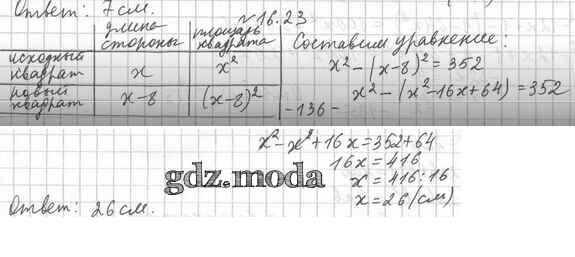 Ответ: 7 см.
№16.23
длина стороны
площадь квадрата
Составим уравнение:
исходный квадрат x x²
x² - (x-8)² = 352
новый квадрат x-8 (x-8)²
x² - (x² - 16x + 64) = 352
- 136 -
x² - x² + 16x = 352 + 64
16x = 416
x = 416 : 16
x = 26 (см)
gdz.moda
Ответ: 26 см.